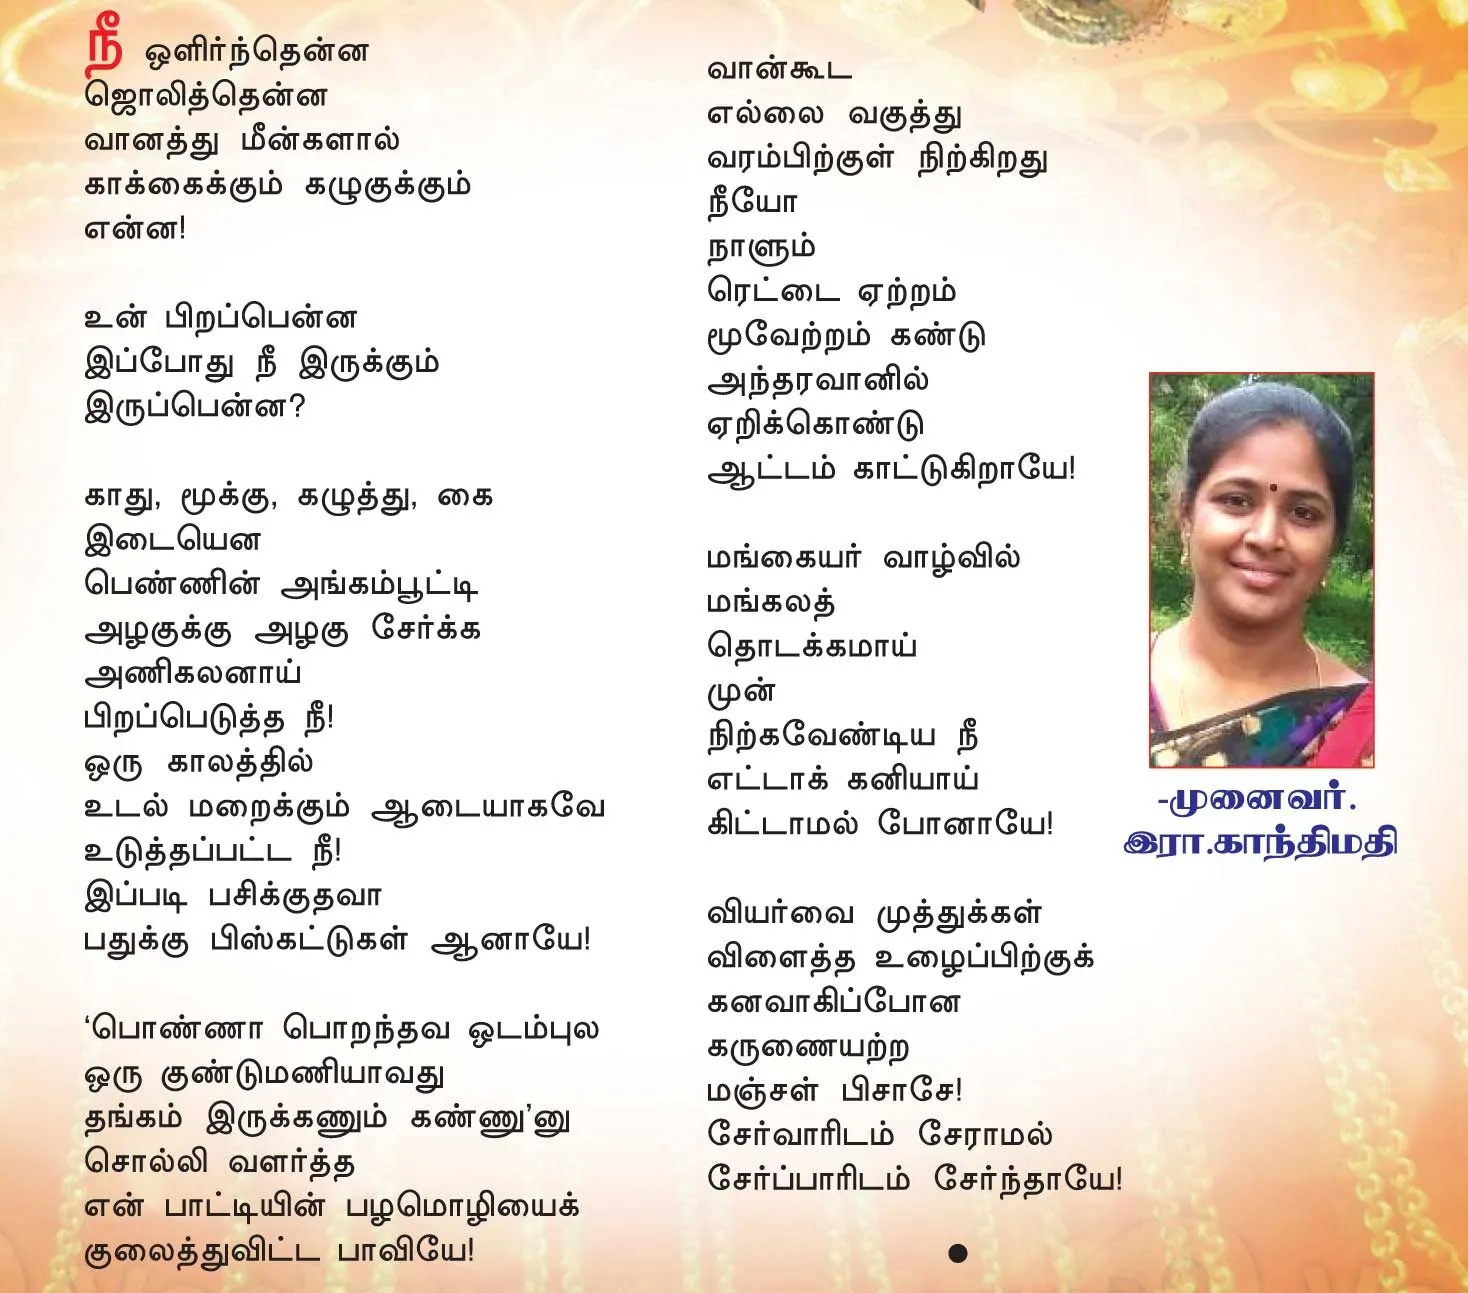 நீ ஒளிர்ந்தென்ன
ஜொலித்தென்ன
வானத்து மீன்களால்
காக்கைக்கும் கழுகுக்கும்
என்ன!
உன் பிறப்பென்ன
இப்போது நீ இருக்கும்
இருப்பென்ன?
காது, மூக்கு, கழுத்து, கை
இடையென
பெண்ணின் அங்கம்பூட்டி
அழகுக்கு அழகு சேர்க்க
அணிகலனாய்
பிறப்பெடுத்த நீ!
ஒரு காலத்தில்
உடல் மறைக்கும் ஆடையாகவே
உடுத்தப்பட்ட நீ!
இப்படி பசிக்குதவா
பதுக்கு பிஸ்கட்டுகள் ஆனாயே!
‘பொண்ணா பொறந்தவ ஒடம்புல
ஒரு குண்டுமணியாவது
தங்கம் இருக்கணும் கண்ணு’னு
சொல்லி வளர்த்த
என் பாட்டியின் பழமொழியைக்
குலைத்துவிட்ட பாவியே!
வான்கூட
எல்லை வகுத்து
வரம்பிற்குள் நிற்கிறது
நீயோ
நாளும்
ரெட்டை ஏற்றம்
மூவேற்றம் கண்டு
அந்தரவானில்
ஏறிக்கொண்டு
ஆட்டம் காட்டுகிறாயே!
மங்கையர் வாழ்வில்
மங்கலத்
தொடக்கமாய்
முன்
நிற்கவேண்டிய நீ
எட்டாக் கனியாய்
கிட்டாமல் போனாயே!
வியர்வை முத்துக்கள்
விளைத்த உழைப்பிற்குக்
கனவாகிப்போன
கருணையற்ற
மஞ்சள் பிசாசே!
சேர்வாரிடம் சேராமல்
சேர்ப்பாரிடம் சேர்ந்தாயே!
-முனைவர்.
இரா.காந்திமதி